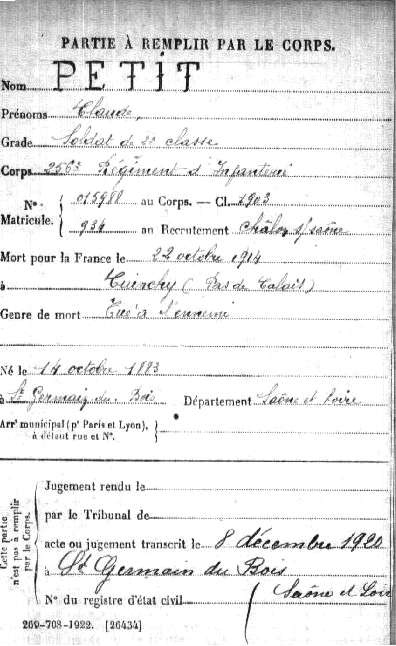 PARTIE À REMPLIR PAR LE CORPS.
Nom PETIT
Prénoms Claude,
Grade Soldat de 2e classe
Corps 256e Régiment d'Infanterie
N° 015988 au Corps. — Cl. 1903
Matricule. 934 au Recrutement Châlon s/ saône
Mort pour la France le 22 octobre 1914
à Cuinchy (Pas de Calais)
Genre de mort Tué à l'ennemi
Né le 14 octobre 1883
à St Germain du Bois Département Saône et Loire
Arrt municipal (pr Paris et Lyon),
à défaut rue et N°.
Cette partie
n'est pas à remplir
par le Corps.
Jugement rendu le
par le Tribunal de
acte ou jugement transcrit le 8 décembre 1920
à St Germain du Bois
N° du registre d'état civil Saône et Loire
269-708-1922. [26434]